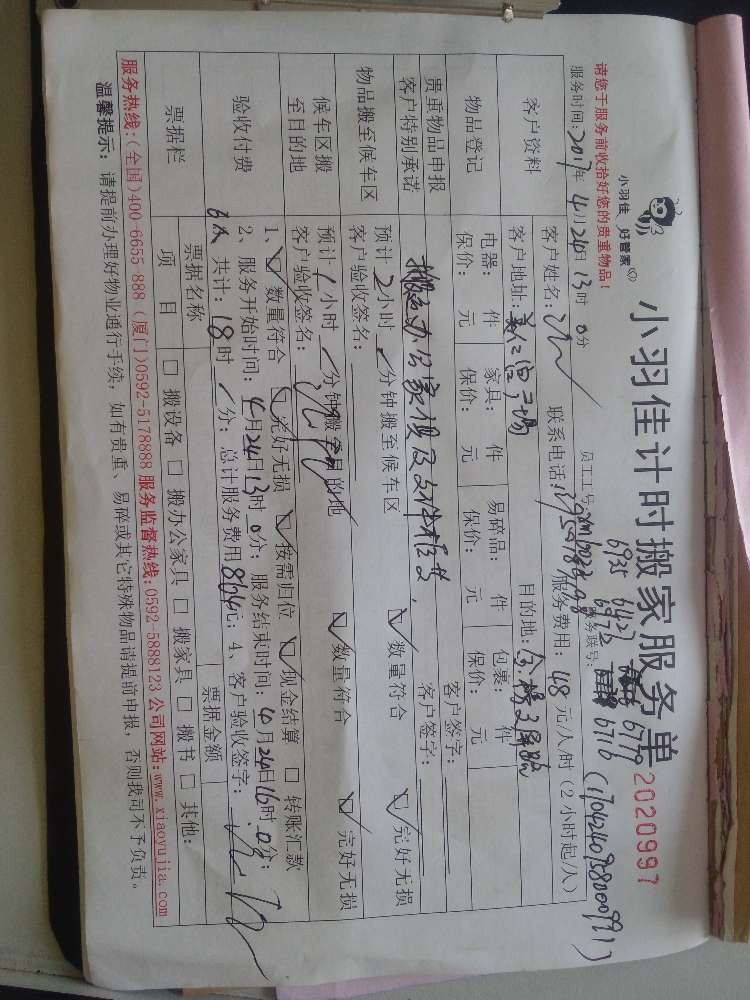 小羽佳 好管家
小羽佳计时搬家服务单 2020997
请您于服务前收拾好您的贵重物品!
员工工号:
6935 6427 6779
6972 6716
服务时间:2017年4月24日13时0分
服务联号:
客户资料
客户姓名: 联系电话: 服务费用:48元/人/时(2小时起/人)
客户地址: 目的地:
物品登记
电器: 件 家具: 件 易碎品: 件 包裹: 件
保价: 元 保价: 元 保价: 元 保价: 元
贵重物品申报 客户签字:
客户特别承诺 搬名办公家俱及文件柜 客户签字:
物品搬至候车区
预计2小时/分钟搬至候车区 ☑数量符合 ☑完好无损
客户验收签名:
候车区搬至目的地
预计1小时/分钟搬至目的地 ☑数量符合 ☑完好无损
客户验收签名:
验收付费
1、☑数量符合 ☑完好无损 ☑按需归位 ☑现金结算 ☐转账汇款
2、服务开始时间:4月24日13时0分;服务结束时间:4月24日16时0分;
6人 共计:18时/分;总计服务费用864元;4、客户验收签字:
票据栏
票据名称 票据金额
项目 ☐搬设备 ☐搬办公家具 ☐搬家具 ☐搬书 ☐其他:
服务热线:(全国)400-6655-888 (厦门)0592-5178888 服务监督热线:0592-5888123 公司网站:www.xiaoyujia.com
温馨提示:请提前办理好物业通行手续,如有贵重、易碎或其它特殊物品请提前申报,否则我司不予负责。